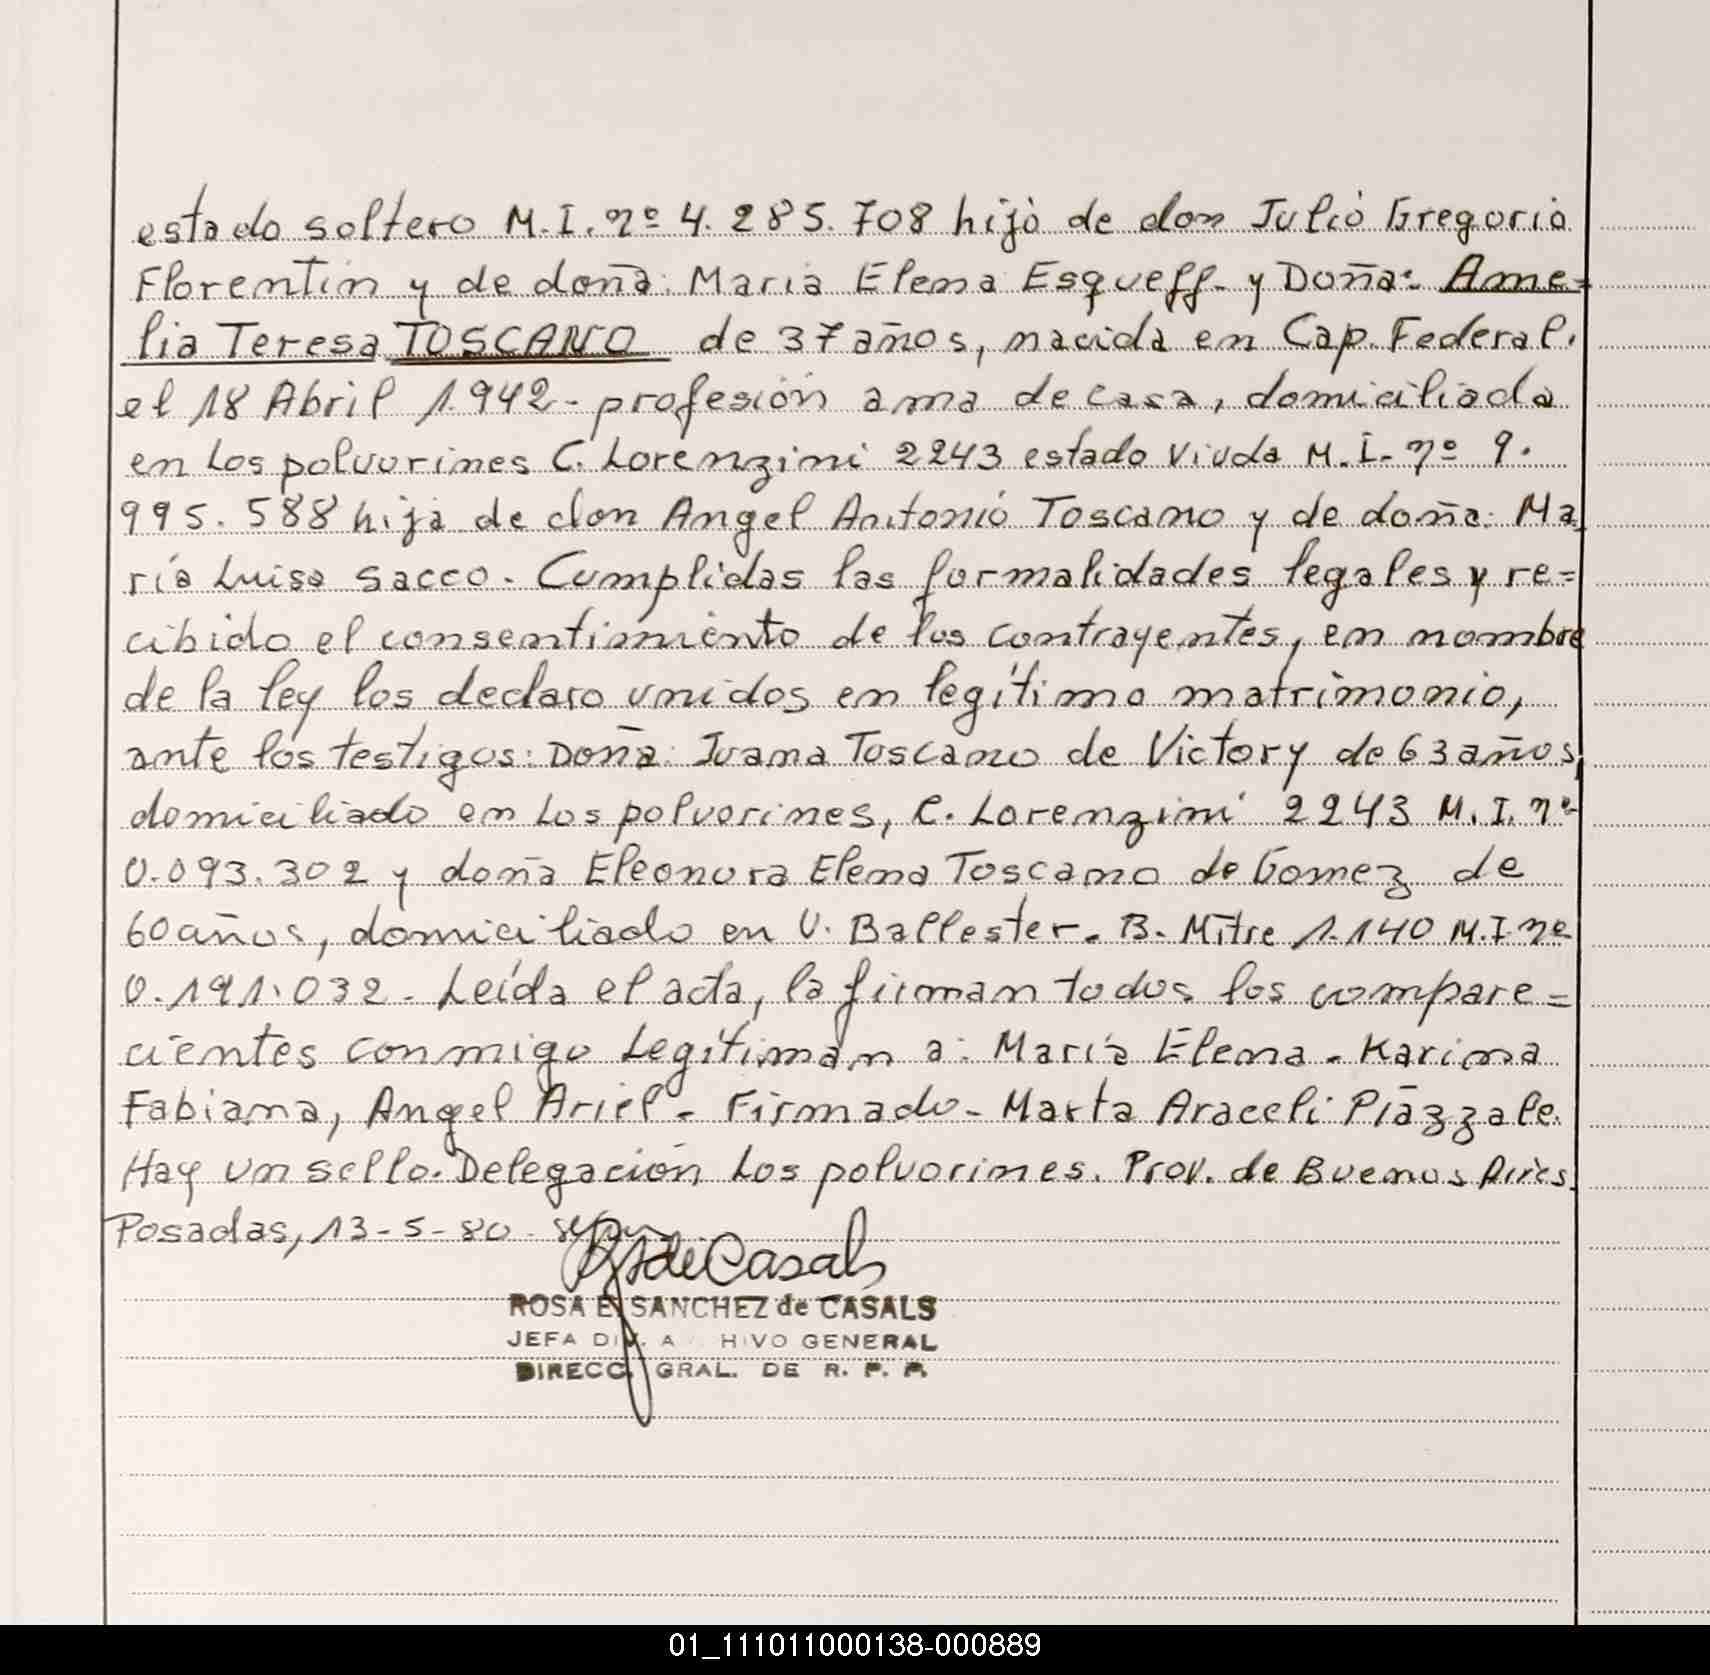 estado soltero M.I. nº 4.285.708 hijo de don Julio Gregorio
Florentin y de doña: Maria Elena Esqueff- y Doña: Ame-
lia Teresa TOSCANO de 37 años, nacida en Cap. Federal.
el 18 Abril 1.942- profesión ama de casa, domiciliada
en Los polvorines C. Lorenzini 2243 estado Viuda M.I- nº 9.
995.588 hija de don Angel Antonio Toscano y de doña: Ma
ría Luisa Sacco. Cumplidas las formalidades legales y re=
cibido el consentimiento de los contrayentes, en nombre
de la ley los declaro unidos en legítimo matrimonio,
ante los testigos: Doña: Juana Toscano de Victory de 63 años,
domiciliado en Los polvorines, C. Lorenzini 2243 M.I. nº
0.093.302 y doña Eleonora Elena Toscano de Gomez de
60 años, domiciliado en V. Ballester. B. Mitre 1.140 M.I nº
0.191.032. Leída el acta, la firman todos los compare=
cientes conmigo Legitiman a: María Elena. Karina
Fabiana, Angel Ariel. Firmado- Marta Araceli Piazzale.
Hay un sello. Delegación Los polvorines. Prov. de Buenos Aires.
Posadas, 13-5-80.
de Casals
ROSA E. SANCHEZ de CASALS
JEFA DIV. A HIVO GENERAL
DIRECC. GRAL. DE R. P. P.
01_111011000138-000889